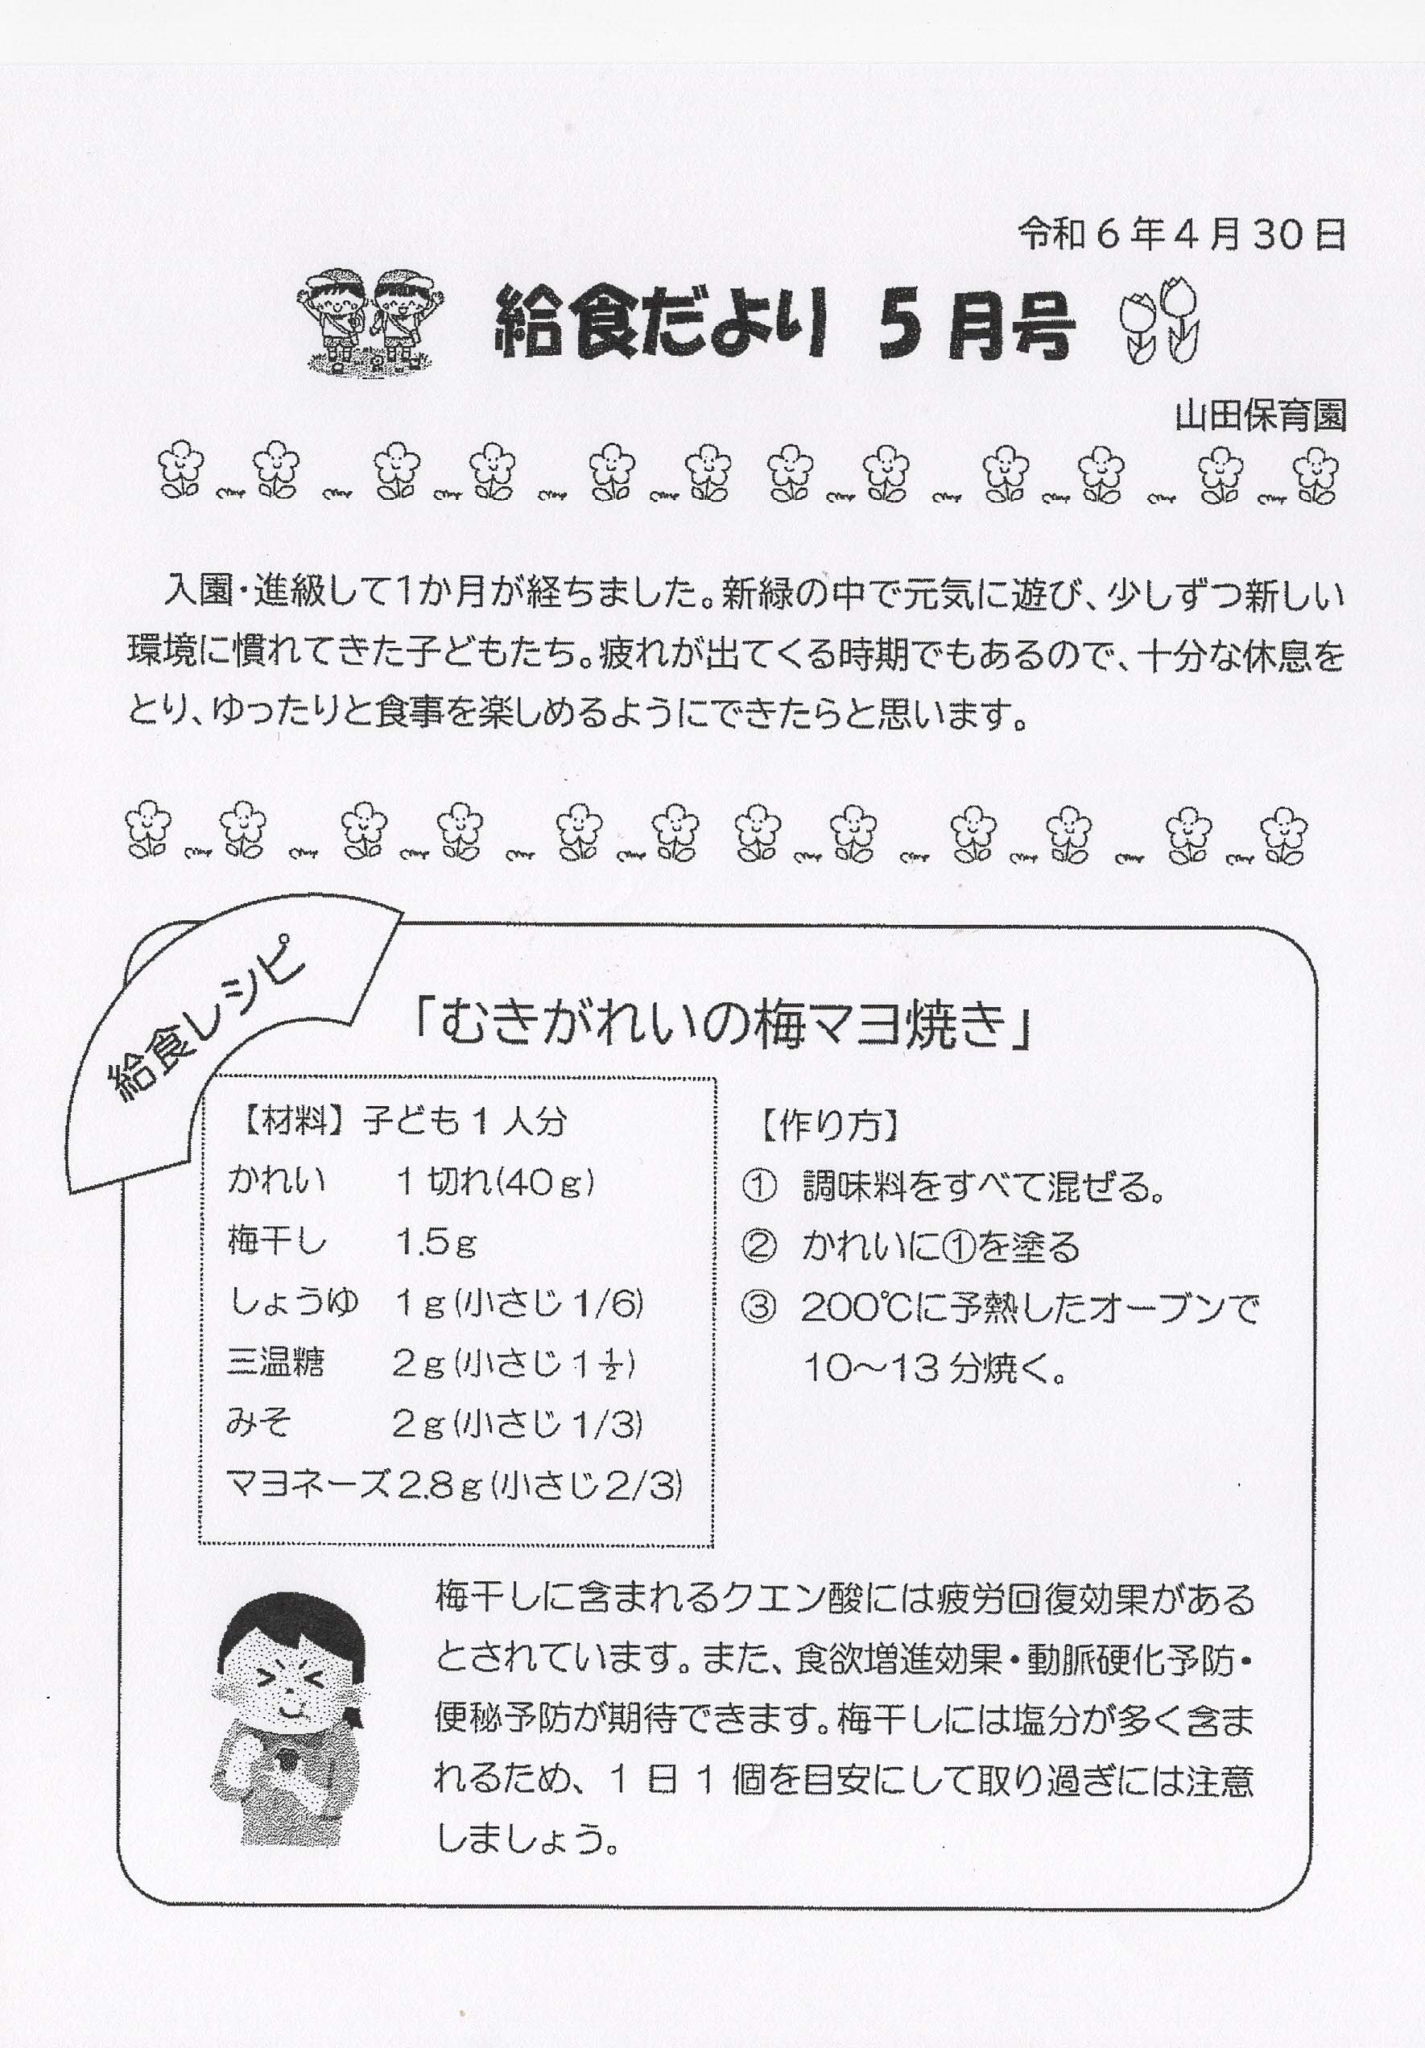 令和6年4月30日
給食だより 5月号
山田保育園
入園・進級して1か月が経ちました。新緑の中で元気に遊び、少しずつ新しい
環境に慣れてきた子どもたち。疲れが出てくる時期でもあるので、十分な休息を
とり、ゆったりと食事を楽しめるようにできたらと思います。
給食レシピ
「むきがれいの梅マヨ焼き」
【材料】子ども1人分
かれい 1切れ(40g)
梅干し 1.5g
しょうゆ 1g(小さじ1/6)
三温糖 2g(小さじ1½)
みそ 2g(小さじ1/3)
マヨネーズ2.8g(小さじ2/3)
【作り方】
① 調味料をすべて混ぜる。
② かれいに①を塗る
③ 200℃に予熱したオーブンで
10～13分焼く。
梅干しに含まれるクエン酸には疲労回復効果がある
とされています。また、食欲増進効果・動脈硬化予防・
便秘予防が期待できます。梅干しには塩分が多く含ま
れるため、1日1個を目安にして取り過ぎには注意
しましょう。